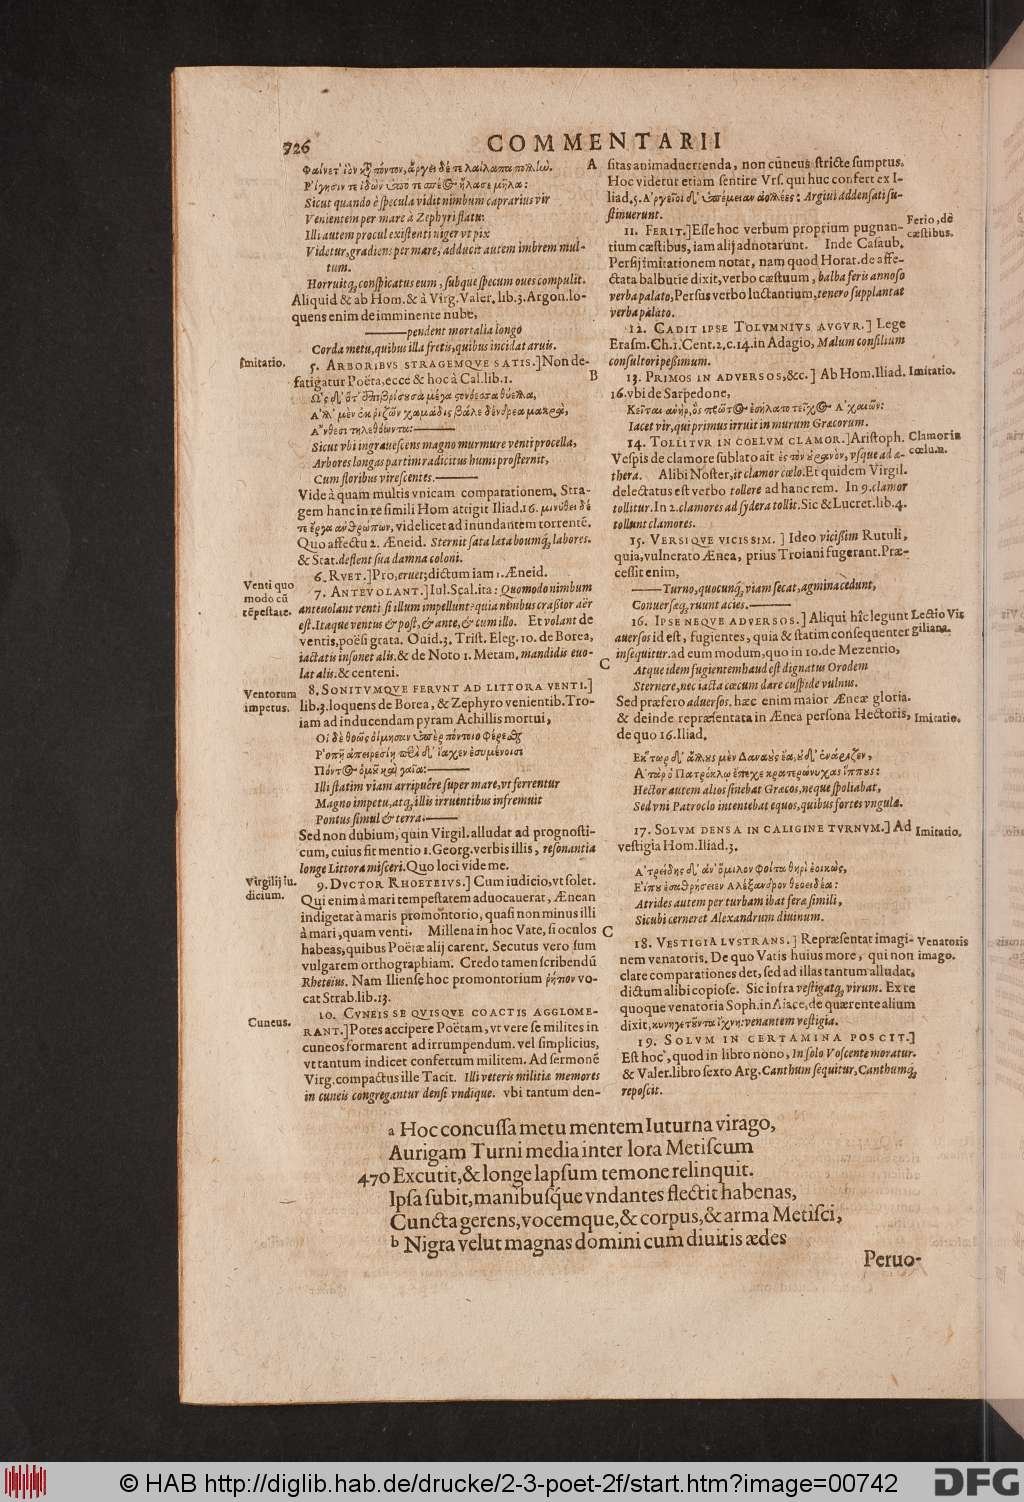 726
COMMENTARII
Sicut quando è specula vidit nimbum caprarius vir
Venientem per mare à Zephyri flatu:
Illi autem procul existenti niger vt pix
Videtur, gradiens per mare, adducit autem imbrem mul-
tum.
Horruitq́, conspicatus eum, subque specum oues compulit.
Aliquid & ab Hom. & à Virg. Valer. lib. 3. Argon. lo-
quens enim de imminente nube,
——pendent mortalia longo
Corda metu, quibus illa fretis, quibus incidat aruis.
Imitatio.
5. ARBORIBVS STRAGEMQVE SATIS.] Non de-
fatigatur Poëta, ecce & hoc à Cal. lib. 1.
Sicut vbi ingrauescens magno murmure venti procella,
Arbores longas partim radicitus humi prosternit,
Cum floribus virescentes.——
Vide à quam multis vnicam comparationem. Stra-
gem hanc in re simili Hom attigit Iliad. 16. μινύθει δέ
τε ἔργα ἀνθρώπων, videlicet ad inundantem torrentē.
Quo affectu 2. Æneid. Sternit sata lata boumq́, labores.
& Stat. deflent sua damna coloni.
6. RVET.] Pro, eruet; dictum iam 1. Æneid.
Venti quo
modo cū
tēpestate.
7. ANTEVOLANT.] Iul. Scal. ita: Quomodo nimbum
anteuolant venti si illum impellunt? quia nimbus crassior aër
est. Itaque ventus & post, & ante, & cum illo. Et volant de
ventis, poësi grata. Ouid. 3. Trist. Eleg. 10. de Borea,
iactatis insonet alis. & de Noto 1. Metam. mandidis euo-
lat alis. & centeni.
Ventorum
impetus.
8. SONITVMQVE FERVNT AD LITTORA VENTI.]
lib. 3. loquens de Borea, & Zephyro venientib. Tro-
iam ad inducendam pyram Achillis mortui,
Illi statim viam arripuêre super mare, vt ferrentur
Magno impetu, atq́, illis irruentibus infremuit
Pontus simul & terra:——
Sed non dubium, quin Virgil. alludat ad prognosti-
cum, cuius fit mentio 1. Georg. verbis illis, resonantia
longe Littora misceri. Quo loci vide me.
Virgilij iu.
dicium.
9. DVCTOR RHOETEIVS.] Cum iudicio, vt solet.
Qui enim à mari tempestatem aduocauerat, Ænean
indigetat à maris promontorio, quasi non minus illi
à mari, quam venti. Millena in hoc Vate, si oculos
habeas, quibus Poëtæ alij carent. Secutus vero sum
vulgarem orthographiam. Credo tamen scribendū
Rheteius. Nam Iliense hoc promontorium ῥήτιον vo-
cat Strab. lib. 13.
Cuneus.
10. CVNEIS SE QVISQVE COACTIS AGGLOME-
RANT.] Potes accipere Poëtam, vt vere se milites in
cuneos formarent ad irrumpendum. vel simplicius,
vt tantum indicet confertum militem. Ad sermonē
Virg. compactus ille Tacit. Illi veteris militiæ memores
in cuneis congregantur densi vndique. vbi tantum den-
A
sitas animaduertenda, non cūneus stricte sumptus.
Hoc videtur etiam sentire Vrs. qui huc confert ex I-
liad. 5. Ἀργεῖοι δ' ὑπέμειναν ἀολλέες: Argiui addensati su-
stinuerunt.
Ferio, de
cæstibus.
11. FERIT.] Esse hoc verbum proprium pugnan-
tium cæstibus, iam alij adnotarunt. Inde Casaub.
Persij imitationem notat, nam quod Horat. de affe-
ctata balbutie dixit, verbo cæstuum, balba feris annoso
verba palato, Persius verbo luctantium, tenero supplantat
verba palato.
12. CADIT IPSE TOLVMNIVS AVGVR.] Lege
Erasm. Ch. 1. Cent. 2. c. 14. in Adagio, Malum consilium
consultori pessimum.
B
13. PRIMOS IN ADVERSOS, &c.] Ab Hom. Iliad.
Imitatio.
16. vbi de Sarpedone,
Iacet vir, qui primus irruit in murum Græcorum.
14. TOLLITVR IN COELVM CLAMOR.] Aristoph.
Clamor in
cœlum.
Vespis de clamore sublato ait ἐς τὸν οὐρανὸν, vsque ad æ-
thera. Alibi Noster, it clamor cœlo. Et quidem Virgil.
delectatus est verbo tollere ad hanc rem. In 9. clamor
tollitur. In 2. clamores ad sydera tollit. Sic & Lucret. lib. 4.
tollunt clamores.
15. VERSIQVE VICISSIM.] Ideo vicissim Rutuli,
quia, vulnerato Ænea, prius Troiani fugerant. Præ-
cessit enim,
——Turno, quocunq́, viam secat, agmina cedunt,
Conuersæq́, ruunt acies.——
16. IPSE NEQVE ADVERSOS.] Aliqui hîc legunt
Lectio Vir
giliana.
auersos id est, fugientes, quia & statim consequenter
insequitur. ad eum modum, quo in 10. de Mezentio,
C
Atque idem fugientem haud est dignatus Orodem
Sternere, nec iacta cæcum dare cuspide vulnus.
Sed præfero aduersos. hæc enim maior Æneæ gloria.
& deinde repræsentata in Ænea persona Hectoris,
Imitatio.
de quo 16. Iliad.
Hector autem alios sinebat Græcos, neque spoliabat,
Sed vni Patroclo intentebat equos, quibus fortes vngulæ.
17. SOLVM DENSA IN CALIGINE TVRNVM.] Ad
Imitatio.
vestigia Hom. Iliad. 3.
Atrides autem per turbam ibat feræ similis,
Sicubi cerneret Alexandrum diuinum.
C
18. VESTIGIA LVSTRANS.] Repræsentat imagi-
Venatoris
imago.
nem venatoris. De quo Vatis huius more, qui non
clare comparationes det, sed ad illas tantum alludat,
dictum alibi copiose. Sic infra vestigatq́, virum. Ex re
quoque venatoria Soph. in Aiace, de quærente alium
dixit, κυνηγετοῦντα ἴχνη: venantem vestigia.
19. SOLVM IN CERTAMINA POSCIT.]
Est hoc, quod in libro nono, In solo Volscente moratur.
& Valer. libro sexto Arg. Canthum sequitur, Canthumq́,
reposcit.
a Hoc concussa metu mentem Iuturna virago,
Aurigam Turni media inter lora Metiscum
470 Excutit, & longe lapsum temone relinquit.
Ipsa subit, manibusq́ue vndantes flectit habenas,
Cuncta gerens, vocemque, & corpus, & arma Metisci,
b Nigra velut magnas domini cum diuitis ædes
Peruo-
© HAB http://diglib.hab.de/drucke/2-3-poet-2f/start.htm?image=00742
DFG